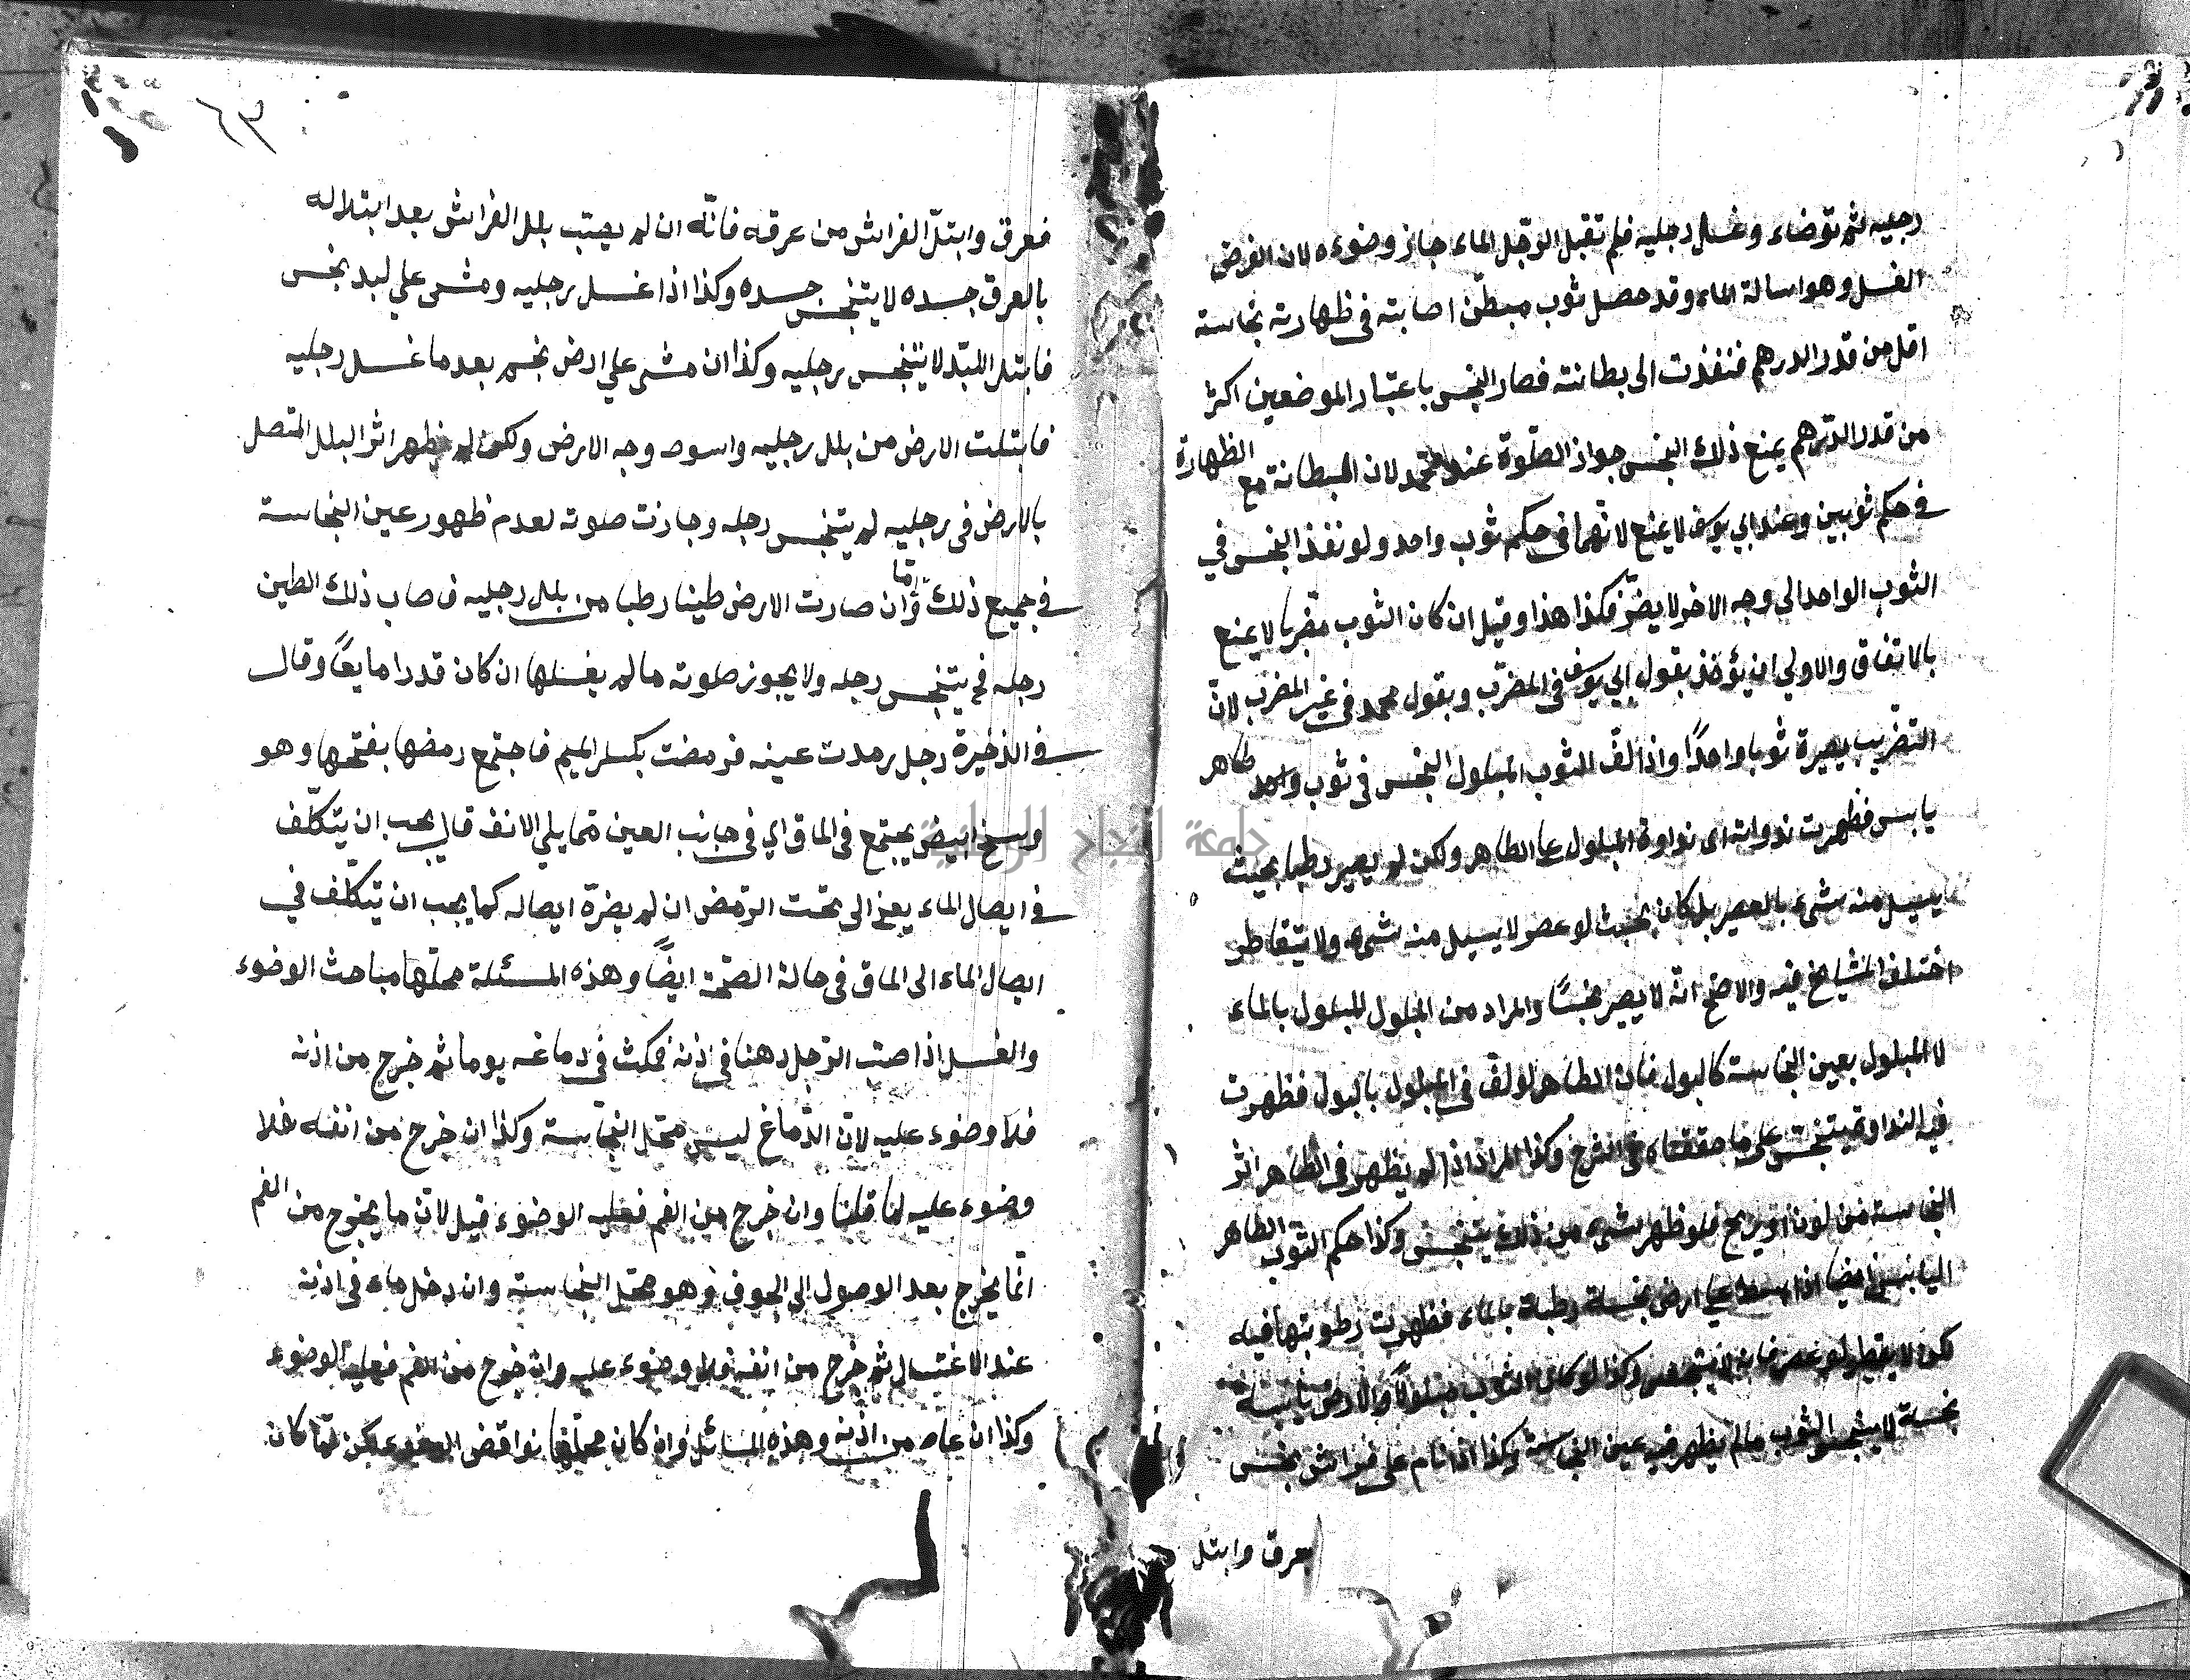 رجليه ثم توضاء وغسل رجليه فلم تقبل الرجل الماء جاز وضوءه لان الفرض
الغسل وهو اسالة الماء وقد حصل ثوب مبطن اصابته في ظهارته نجاسة
اقل من قدر الدرهم فنفذت الى بطانته فصار النجس باعتبار الموضعين اكثر
من قدر الدرهم يمنع ذلك النجس جواز الصلوة عند محمد لان البطانة مع الظهارة
في حكم ثوبين وعند ابي يوسف لا يمنع لانهما في حكم ثوب واحد ولو نفذ النجس في
الثوب الواحد الى وجه الاخر لا يضر فكذا هذا وقيل ان كان الثوب مضربا لا يمنع
بالاتفاق والاولى ان يؤخذ بقول ابي يوسف في المضرب وبقول محمد في غير المضرب لان
التضريب يصيره ثوبا واحدًا واذا لف الثوب المبلول النجس في ثوب واحد طاهر
يابس فظهرت ندواته اى نداوة المبلول على الطاهر ولكن لم يصير رطبا بحيث
يسيل منه شىء بالعصر بل كان بحيث لو عصر لا يسيل منه شىء ولا يتقاطر
اختلف المشايخ فيه والاصح انه لا يصير نجسًا والمراد من المبلول المبلول بالماء
لا المبلول بعين النجاسة كالبول فان الطاهر لو لف في المبلول بالبول فظهرت
فيه النداوة يتنجس على ما حققناه في الشرح وكذا المراد اذا لم يظهر في الطاهر اثر
النجاسة من لون او ريح فلو ظهر شىء من ذلك يتنجس وكذا حكم الثوب الطاهر
اليابس ايضا اذا بسط على ارض نجسة رطبة بالماء فظهرت رطوبتها فيه
لكن لا يقطر لو عصر فانه لا يتنجس وكذا لو كان الثوب مبلولا والارض يابسة
نجسة لا يتنجس الثوب ما لم يظهر فيه عين النجاسة وكذا اذا نام على فراش نجس
فعرق وابتل
٦٣
فعرق وابتلّ الفراش من عرقه فانّه ان لم يصب بلل الفراش بعد ابتلاله
بالعرق جسده لا يتنجس جسده وكذا اذا غسل رجليه ومشى على لبد نجس
فابتل اللبد لا يتنجس رجليه وكذا ان مشى على ارض نجس بعد ما غسل رجليه
فابتلت الارض من بلل رجليه واسود وجه الارض ولكن لم يظهر اثر البلل المتصل
بالارض في رجليه لم يتنجس رجله وجازت صلوته لعدم ظهور عين النجاسة
في جميع ذلك وامّا ان صارت الارض طينا رطبا من بلل رجليه فاصاب ذلك الطين
رجله فح يتنجس رجله ولا يجوز صلوته ما لم يغسلها ان كان قدرا مايعًا وقال
في الذخيرة رجل رمدت عينه فرمضت بكسر الميم فاجتمع رمضها بفتحها وهو
وسخ ابيض يجتمع في الماق اي في جانب العين مما يلى الانف قال يجب ان يتكلّف
في ايصال الماء يعنى الى تحت الرمض ان لم يضرّه ايصاله كما يجب ان يتكلّف في
ايصال الماء الى الماق في حالة الصحّة ايضًا وهذه المسئلة محلّها مباحث الوضوء
والغسل اذا صب الرّجل دهنا في اذنه فمكث في دماغه يوما ثم خرج من اذنه
فلا وضوء عليه لانّ الدّماغ ليس محل النجاسة وكذا ان خرج من انفه فلا
وضوء عليه لما قلنا وان خرج من الفم فعليه الوضوء قيل لان ما يخرج من الفم
انما يخرج بعد الوصول الى الجوف وهو محل النجاسة وان دخل ماء في اذنه
عند الاغتسال ثم خرج من انفه فلا وضوء عليه وان خرج من الفم فعليه الوضوء
وكذا ان عاد من اذنه وهذه المسائل وان كان محلها نواقض الوضوء لكن لما كان
جامعة النجاح الوطنية